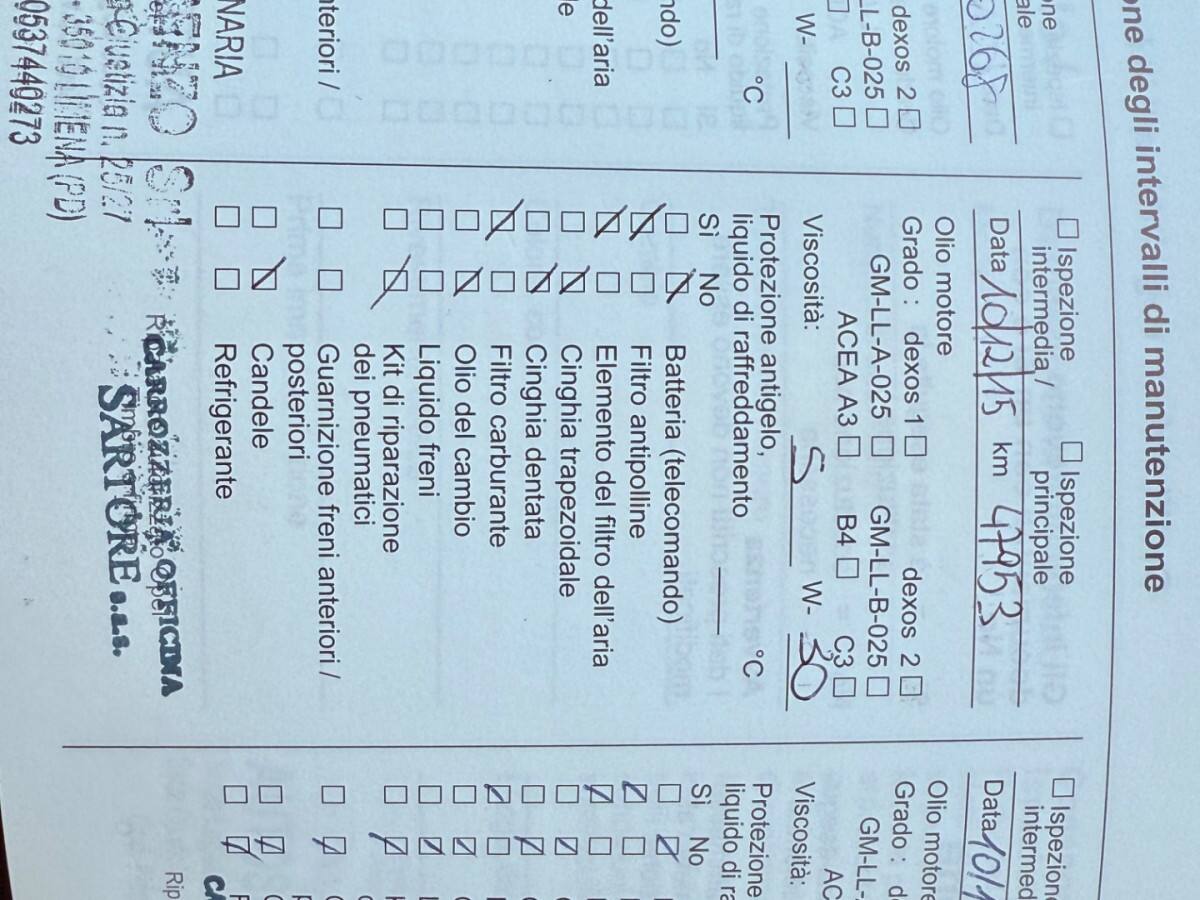 one degli intervalli di manutenzione
one
ale
0268
dexos 2
LL-B-025
C3
W-
°C
ndo)
dell'aria
le
nteriori /
NARIA
ENZO Srl
Giustizia n. 25/27
35010 LIMENA (PD)
0537440273
Ispezione intermedia /
Ispezione principale
Data 10/12/15 km 47953
Olio motore
Grado : dexos 1 dexos 2
GM-LL-A-025 GM-LL-B-025
ACEA A3 B4 C3
Viscosità: 5 W- 30
Protezione antigelo,
liquido di raffreddamento °C
Sì No
Batteria (telecomando)
Filtro antipolline
Elemento del filtro dell'aria
Cinghia trapezoidale
Cinghia dentata
Filtro carburante
Olio del cambio
Liquido freni
Kit di riparazione
dei pneumatici
Guarnizione freni anteriori /
posteriori
Candele
Refrigerante
CARROZZERIA OFFICINA
SARTORE s.a.s.
Ispezione
intermed
Data 10/1
Olio motore
Grado : d
GM-LL-
AC
Viscosità:
Protezione
liquido di ra
Sì No
Rip
CA